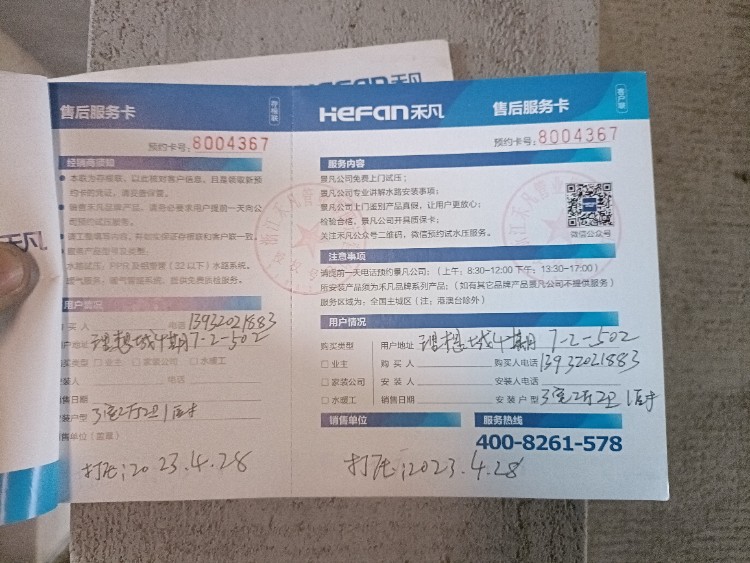 HeFan禾凡
售后服务卡
存根联
预约卡号:8004367
经销商须知
本联为存根联,以此核对客户信息,且是领取新预
约卡的凭证,请妥善保管。
销售禾凡品牌产品,请务必要求用户提前一天向公
水路试压:PPR及铝塑管(32以下)水路系统。
用户情况
买人 电话 13932021883
用户地址 理想城4期7-2-502
购买类型 □业主 □家装公司 □水暖工
安装人 电话
销售日期
安装户型 3室2厅2卫1厨
销售单位(盖章)
打压:2023.4.28
禾凡
HeFan禾凡 售后服务卡
客户联
预约卡号:8004367
服务内容
景凡公司免费上门试压;
景凡公司专业讲解水路安装事项;
景凡公司上门鉴别产品真假,让用户更放心;
检验合格,景凡公司开具质保卡;
关注禾凡公众号二维码,微信预约试水压服务。
微信公众号
注意事项
请提前一天电话预约景凡公司:(上午:8:30-12:00 下午:13:30-17:00)
所安装产品须为禾凡品牌系列产品;(如有其它品牌产品景凡公司不提供服务)
服务区域为:全国主城区(注:港澳台除外)
用户情况
购买类型 用户地址 理想城4期 7-2-502
□业主 购买人 购买人电话 13932021883
□家装公司 安装人 安装人电话
□水暖工 销售日期 安装户型 3室2厅2卫1厨
销售单位 服务热线
400-8261-578
打压:2023.4.28